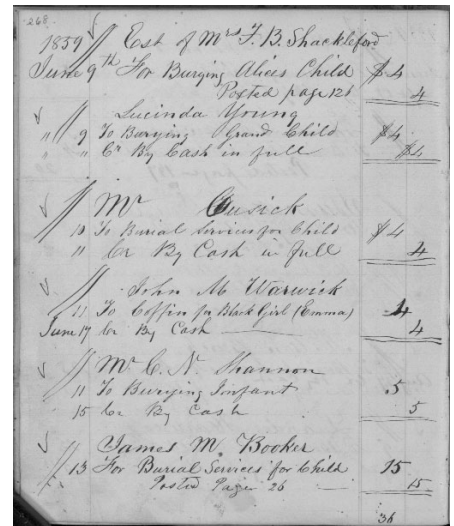 268
1859 Est of Mrs F. B. Shackleford
June 9th For Burying Alices Child $4
Posted page 126 4
Lucinda Young
" 9 To Burying Grand Child $4
" " Cr By Cash in full $4
Mr Cusick
10 To Burial Services for Child $4
11 Cr By Cash in full 4
John M Warwick
11 To Coffin for Black Girl (Emma) 4
June 17 Cr By Cash 4
Mr C. N. Shannon
11 To Burying Infant 5
15 Cr By Cash 5
James M. Booker
13 For Burial Services for Child 15
Posted Page 26 15
36